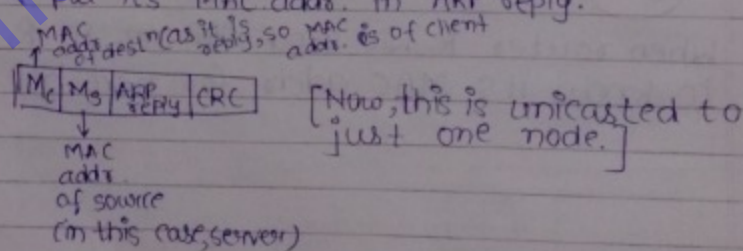 put its MAC addr. in ARP reply.
MAC addr of destn (as it is reply, so MAC addr. is of client
Mc Ms ARP reply CRC
[Now, this is unicasted to
just one node.]
MAC
addr
of source
(in this case, server)